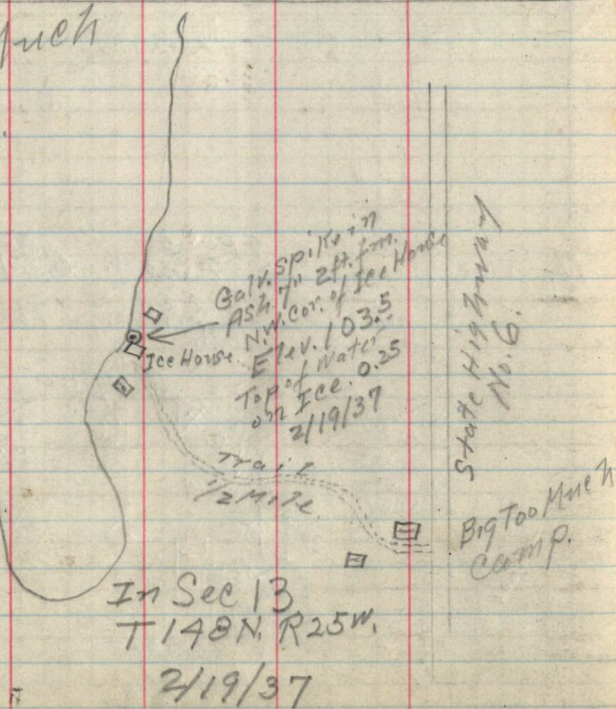 Galv. Spike in
Ash 7" 2ft. fm.
N.W. Cor. of Ice House
Elev. 103.5
Top of Water
on Ice. 0.25
2/19/37
Ice House.
State Highway
No. 6.
Trail
1/2 Mile.
Big Too Much
Camp.
In Sec 13
T 148 N. R 25 W.
2/19/37